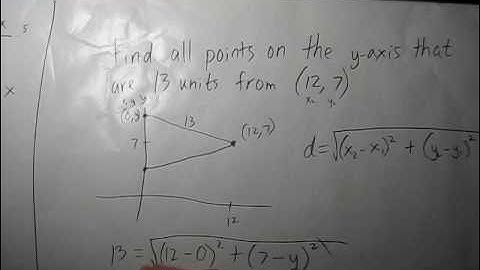 5
x
Find all points on the y-axis that
are 13 units from (12, 7)
x₂ y₂
(0, y)
13
(12, 7)
7
d = √(x₂ - x₁)² + (y₂ - y₁)²
12
13 = √(12 - 0)² + (7 - y)²